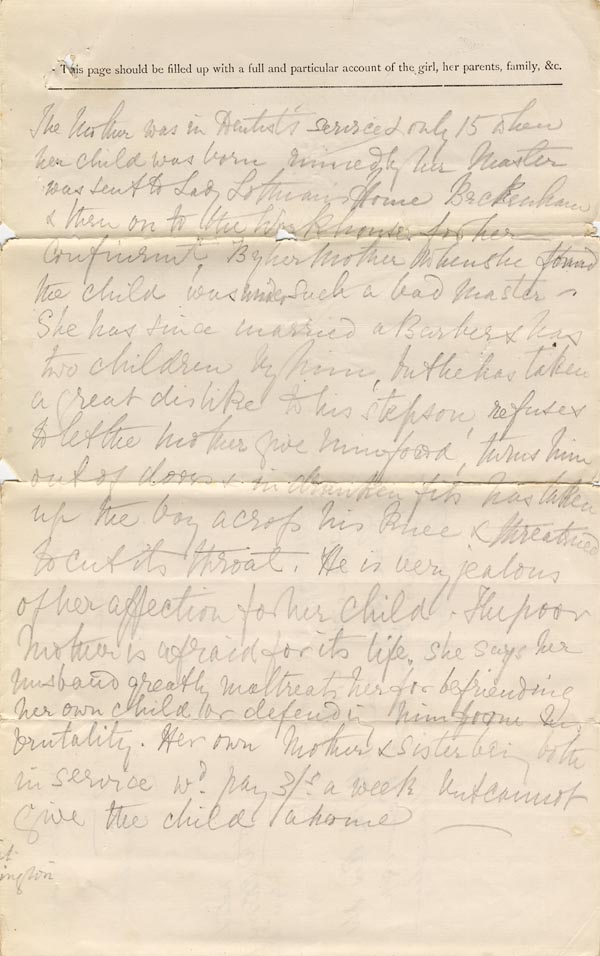 This page should be filled up with a full and particular account of the girl, her parents, family, &c.
The Mother was in Dentist's service & only 15 when
her child was born ruined by her Master
was sent to Lady Lothian's Home Beckenham
& then on to the Workhouse for her
confinement By her Mother when she found
the child was under such a bad master –
She has since married a Barber & has
two children by him, but he has taken
a great dislike to his stepson, refuses
to let the mother give him food, turns him
out of doors & in drunken fits has taken
up the boy across his Knee & threatened
to cut its throat. He is very jealous
of her affection for her child. The poor
Mother is afraid for its life. She says her
husband greatly maltreats her for befriending
her own child or defending him from his
brutality. Her own Mother & sister being both
in service wd. pay 3/s a week but cannot
give the child a home
ington